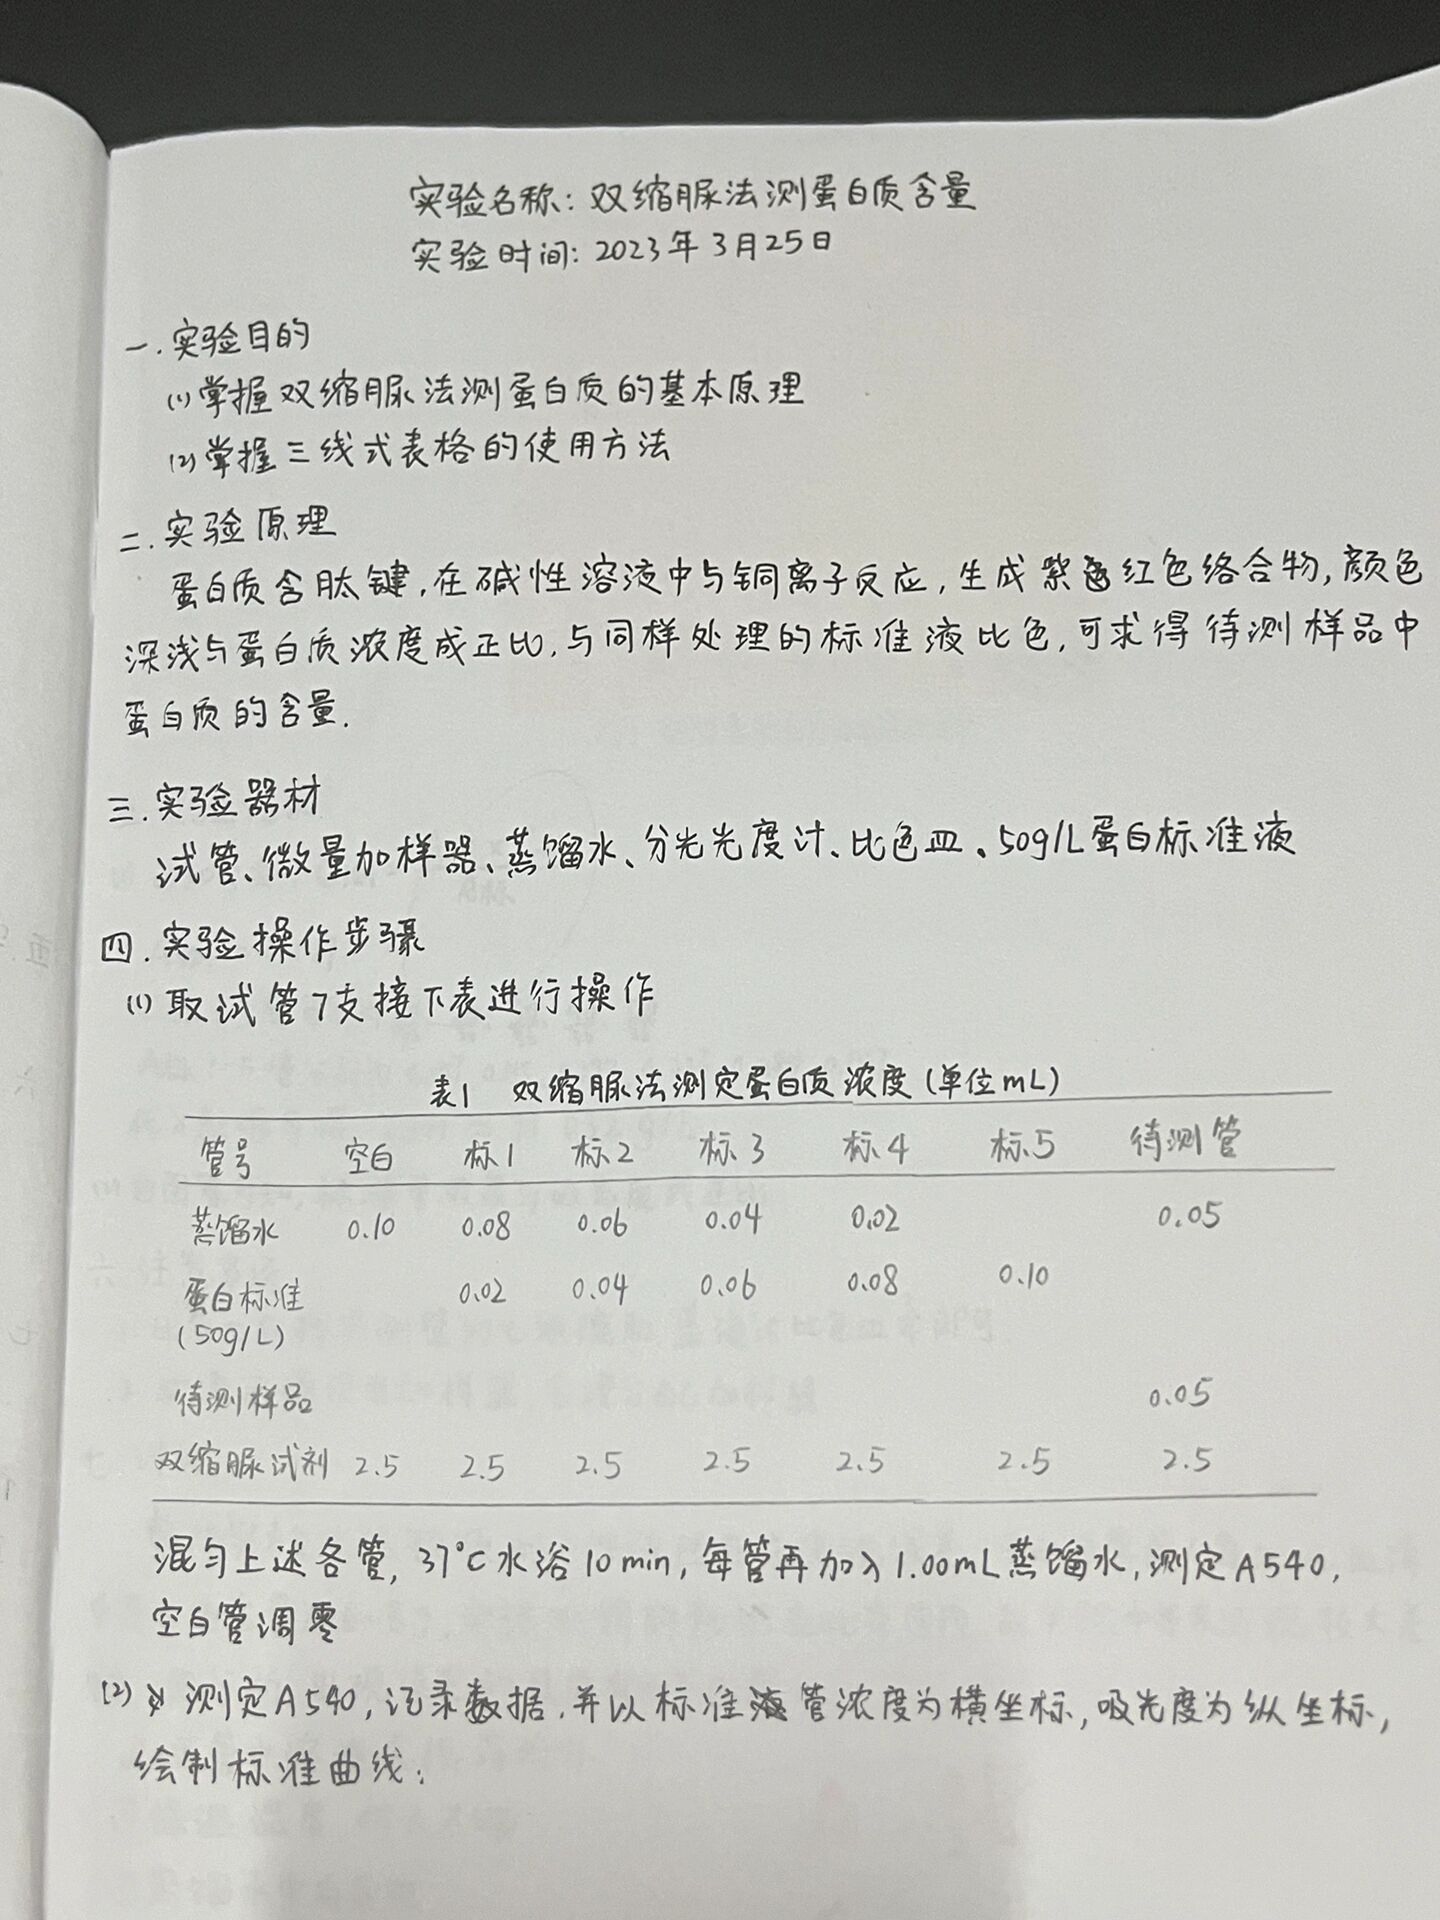 实验名称：双缩脲法测蛋白质含量
实验时间：2023年3月25日
一.实验目的
(1)掌握双缩脲法测蛋白质的基本原理
(2)掌握三线式表格的使用方法
二.实验原理
蛋白质含肽键,在碱性溶液中与铜离子反应,生成紫红色络合物,颜色
深浅与蛋白质浓度成正比,与同样处理的标准液比色,可求得待测样品中
蛋白质的含量.
三.实验器材
试管、微量加样器、蒸馏水、分光光度计、比色皿、50g/L蛋白标准液
四.实验操作步骤
(1)取试管7支接下表进行操作
表1 双缩脲法测定蛋白质浓度(单位mL)
管号 空白 标1 标2 标3 标4 标5 待测管
蒸馏水 0.10 0.08 0.06 0.04 0.02 0.05
蛋白标准 0.02 0.04 0.06 0.08 0.10
(50g/L)
待测样品 0.05
双缩脲试剂 2.5 2.5 2.5 2.5 2.5 2.5 2.5
混匀上述各管,37°C水浴10min,每管再加入1.00mL蒸馏水,测定A540,
空白管调零
(2)测定A540,记录数据.并以标准管浓度为横坐标,吸光度为纵坐标,
绘制标准曲线;